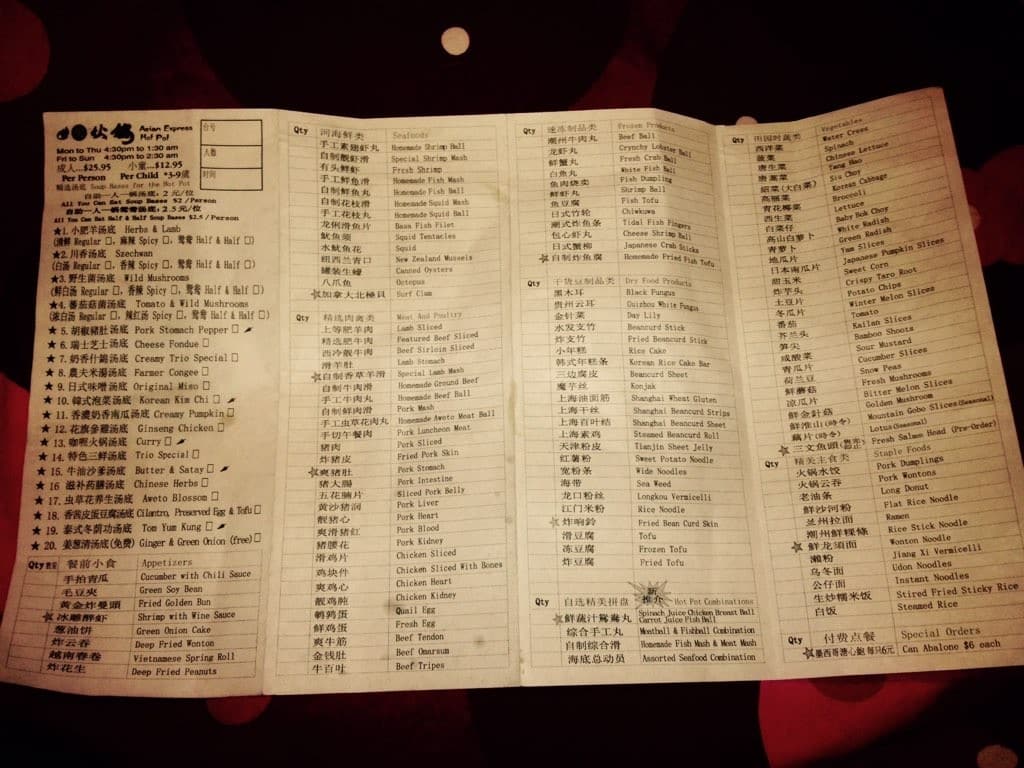 火鍋 Asian Express
Hot Pot
Mon to Thu 4:30pm to 1:30 am
Fri to Sun 4:30pm to 2:30 am
成人...$25.95 小童...$12.95
Per Person Per Child *3-9歲
台号
人数
时间
精选汤底 Soup Bases for the Hot Pot
自助一人一锅汤底: 2 元/位
All You Can Eat Soup Bases $2 /Person
自助一人一锅鸳鸯汤底: 2.5 元/位
All You Can Eat Half & Half Soup Bases $2.5 /Person
★1. 小肥羊汤底 Herbs & Lamb
(清鲜 Regular □, 麻辣 Spicy □, 鸳鸯 Half & Half □)
★2. 川香汤底 Szechwan
(白汤 Regular □, 香辣 Spicy □, 鸳鸯 Half & Half □)
★3. 野生菌汤底 Wild Mushrooms
(鲜白汤 Regular □, 香辣 Spicy □, 鸳鸯 Half & Half □)
★4. 番茄菇菌汤底 Tomato & Wild Mushrooms
(浓白汤 Regular □, 辣红汤 Spicy □, 鸳鸯 Half & Half □)
★ 5. 胡椒豬肚汤底 Pork Stomach Pepper □
★ 6. 瑞士芝士汤底 Cheese Fondue □
★ 7. 奶香什錦汤底 Creamy Trio Special □
★ 8. 農夫米湯汤底 Farmer Congee □
★ 9. 日式味噌汤底 Original Miso □
★ 10. 韓式泡菜汤底 Korean Kim Chi □
★ 11. 香濃奶香南瓜汤底 Creamy Pumpkin □
★ 12. 花旗参雞汤底 Ginseng Chicken □
★ 13. 咖喱火锅汤底 Curry □
★ 14. 特色三鲜汤底 Trio Special □
★ 15. 牛油沙爹汤底 Butter & Satay □
★ 16 滋补药膳汤底 Chinese Herbs □
★ 17. 虫草花养生汤底 Aweto Blossom □
★ 18. 香茜皮蛋豆腐汤底 Cilantro, Preserved Egg & Tofu □
★ 19. 泰式冬荫功汤底 Tom Yum Kung □
★ 20. 姜葱清汤底(免费) Ginger & Green Onion (free) □
Qty 数量 餐前小食 Appetizers
手拍青瓜 Cucumber with Chili Sauce
毛豆夹 Green Soy Bean
黄金炸曼頭 Fried Golden Bun
☆冰雕醉虾 Shrimp with Wine Sauce
葱油饼 Green Onion Cake
炸云吞 Deep Fried Wonton
越南春卷 Vietnamese Spring Roll
炸花生 Deep Fried Peanuts
Qty 河海鲜类 Seafoods
手工素翅虾丸 Homemade Shrimp Ball
自制靓虾滑 Special Shrimp Mash
有头鲜虾 Fresh Shrimp
手工鲜鱼滑 Homemade Fish Mash
自制鲜鱼丸 Homemade Fish Ball
自制花枝滑 Homemade Squid Mash
手工花枝丸 Homemade Squid Ball
龙俐滑鱼片 Basa Fish Filet
魷鱼须 Squid Tentacles
水魷鱼花 Squid
纽西兰青口 New Zealand Museis
罐装生蠔 Canned Oysters
八爪鱼 Octopus
☆加拿大北極貝 Surf Clam
Qty 精选肉禽类 Meat And Poultry
上等肥羊肉 Lamb Sliced
精选肥牛肉 Featured Beef Sliced
西冷靓牛肉 Beef Sirloin Sliced
滑羊肚 Lamb Stomach
☆自制香草羊滑 Special Lamb Mash
自制牛肉滑 Homemade Ground Beef
手工牛肉丸 Homemade Beef Ball
自制鲜肉滑 Pork Mash
手工虫草花肉丸 Homemade Aweto Meat Ball
手切午餐肉 Pork Luncheon Meat
猪肉 Pork Sliced
炸猪皮 Fried Pork Skin
☆爽猪肚 Pork Stomach
猪大腸 Pork Intestine
五花腩片 Sliced Pork Belly
黄沙猪润 Pork Liver
靓猪心 Pork Heart
爽滑猪红 Pork Blood
猪腰花 Pork Kidney
滑鸡片 Chicken Sliced
鸡块件 Chicken Sliced With Bones
爽鸡心 Chicken Heart
靓鸡肫 Chicken Kidney
鹌鹑蛋 Quail Egg
鲜鸡蛋 Fresh Egg
爽牛筋 Beef Tendon
金钱肚 Beef Omarsum
牛百叶 Beef Tripes
Qty 速冻制品类 Frozen Products
潮州牛肉丸 Beef Ball
龙虾丸 Crynchy Lobster Ball
鲜蟹丸 Fresh Crab Ball
白鱼丸 White Fish Ball
鱼肉烧卖 Fish Dumpling
鲜虾丸 Shrimp Ball
鱼豆腐 Fish Tofu
日式竹轮 Chiwkuwa
潮式炸鱼条 Tidal Fish Fingers
包心虾丸 Cheese Shrimp Ball
日式蟹柳 Japanese Crab Sticks
☆自制炸鱼腐 Homemade Fried Fish Tofu
Qty 干货豆制品类 Dry Food Products
黑木耳 Black Fungus
贵州云耳 Guizhou White Fungus
金针菜 Day Lily
水发支竹 Beancurd Stick
炸支竹 Fried Beancurd Stick
小年糕 Rice Cake
韩式年糕条 Korean Rice Cake Bar
三边腐皮 Beancurd Sheet
魔芋丝 Konjak
上海油面筋 Shanghai Wheat Gluten
上海干丝 Shanghai Beancurd Strips
上海百叶结 Shanghai Beancurd Sheet
上海素鸡 Steamed Beancurd Roll
天津粉皮 Tianjin Sheet Jelly
红薯粉 Sweet Potato Noodle
宽粉条 Wide Noodles
海带 Sea Weed
龙口粉丝 Longkou Vermicelli
江门米粉 Rice Noodle
☆炸响鈴 Fried Bean Curd Skin
滑豆腐 Tofu
冻豆腐 Frozen Tofu
炸豆腐 Fried Tofu
新推介
Qty 自选精美拼盘 Hot Pot Combinations
☆鲜蔬汁鸳鸯丸 Spinach Juice Chicken Breast Ball
Carrot Juice Fish Ball
综合手工丸 Meatball & Fishball Combination
自制综合滑 Homemade Fish Mash & Meat Mash
海底总动员 Assorted Seafood Combination
Qty 田园时蔬类 Vegetables
西洋菜 Water Cress
菠菜 Spinach
唐生菜 Chinese Lettuce
唐蒿菜 Tang Hao
紹菜(大白菜) Siu Choy
高丽菜 Korean Cabbage
青花椰菜 Broccoli
西生菜 Lettuce
白菜仔 Baby Bok Choy
高山白萝卜 White Radish
青萝卜 Green Radish
地瓜片 Yam Slices
日本南瓜片 Japanese Pumpkin Slices
甜玉米 Sweet Corn
炸芋头 Crispy Taro Root
土豆片 Potato Chips
冬瓜片 Winter Melon Slices
番茄 Tomato
芥兰头 Kailan Slices
笋尖 Bamboo Shoots
咸酸菜 Sour Mustard
青瓜片 Cucumber Slices
荷兰豆 Snow Peas
鲜蘑菇 Fresh Mushrooms
凉瓜片 Bitter Melon Slices
鲜金針菇 Golden Mushroom
鲜淮山(時令) Mountain Gobo Slices(Seasonal)
藕片(時令) Lotus(Seasonal)
☆三文魚頭(預定) Fresh Salmon Head (Pre-Order)
Qty 精美主食类 Staple Foods
火锅水饺 Pork Dumplings
火锅云吞 Pork Wontons
老油条 Long Donut
鲜沙河粉 Flat Rice Noodle
兰州拉面 Ramen
潮州鲜粿條 Rice Stick Noodle
☆鲜龙须面 Wonton Noodle
濑粉 Jiang Xi Vermicelli
乌冬面 Udon Noodles
公仔面 Instant Noodles
生炒糯米饭 Stired Fried Sticky Rice
白饭 Steamed Rice
Qty 付费点餐 Special Orders
☆墨西哥溏心鮑 每只6元 Can Abalone $6 each